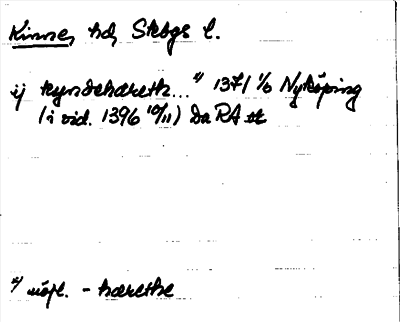 Kinne, hd, Skbgs l.
ij kyndehæreth...*) 1371 1/6 Nyköping
(i vid. 1396 10/11) Da RA
*) möjl. - hærethe